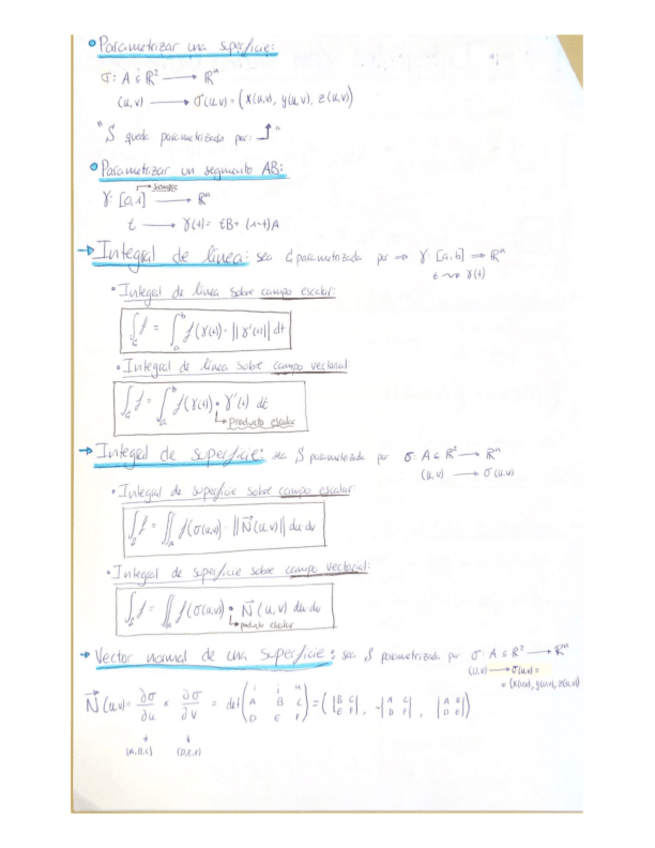 • Parametrizar una superficie:
σ: A ⊆ ℝ² ⟶ ℝⁿ
(u,v) ⟶ σ(u,v) = (x(u,v), y(u,v), z(u,v))
"S queda parametrizada por: ↑"
• Parametrizar un segmento AB:
↱ siempre
γ: [0,1] ⟶ ℝⁿ
t ⟶ γ(t) = tB + (1-t)A
→ Integral de línea: sea C parametrizada por → γ: [a,b] → ℝⁿ
t ⇝ γ(t)
• Integral de línea sobre campo escalar:
∫_C f = ∫_a^b f(γ(t)) · ||γ'(t)|| dt
• Integral de línea sobre campo vectorial:
∫_C f = ∫_a^b f(γ(t)) • γ'(t) dt
↳ Producto escalar
→ Integral de superficie: sea S parametrizada por σ: A ⊆ ℝ² ⟶ ℝⁿ
(u,v) ⟶ σ(u,v)
• Integral de superficie sobre campo escalar
∫_S f = ∬_A f(σ(u,v)) · ||N⃗(u,v)|| du dv
• Integral de superficie sobre campo vectorial:
∫_S f = ∬_A f(σ(u,v)) • N⃗(u,v) du dv
↳ producto escalar
→ Vector normal de una superficie: sea S parametrizada por σ: A ⊆ ℝ² ⟶ ℝⁿ
(u,v) ⟶ σ(u,v) =
= (x(u,v), y(u,v), z(u,v))
N⃗(u,v) = ∂σ/∂u × ∂σ/∂v = det(i j k; A B C; D E F) = (|B C; E F|, -|A C; D F|, |A B; D E|)
↓ ↓
(A,B,C) (D,E,F)